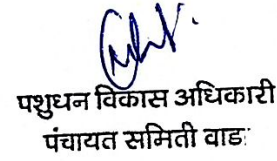 पशुधन विकास अधिकारी
पंचायत समिती वाडः